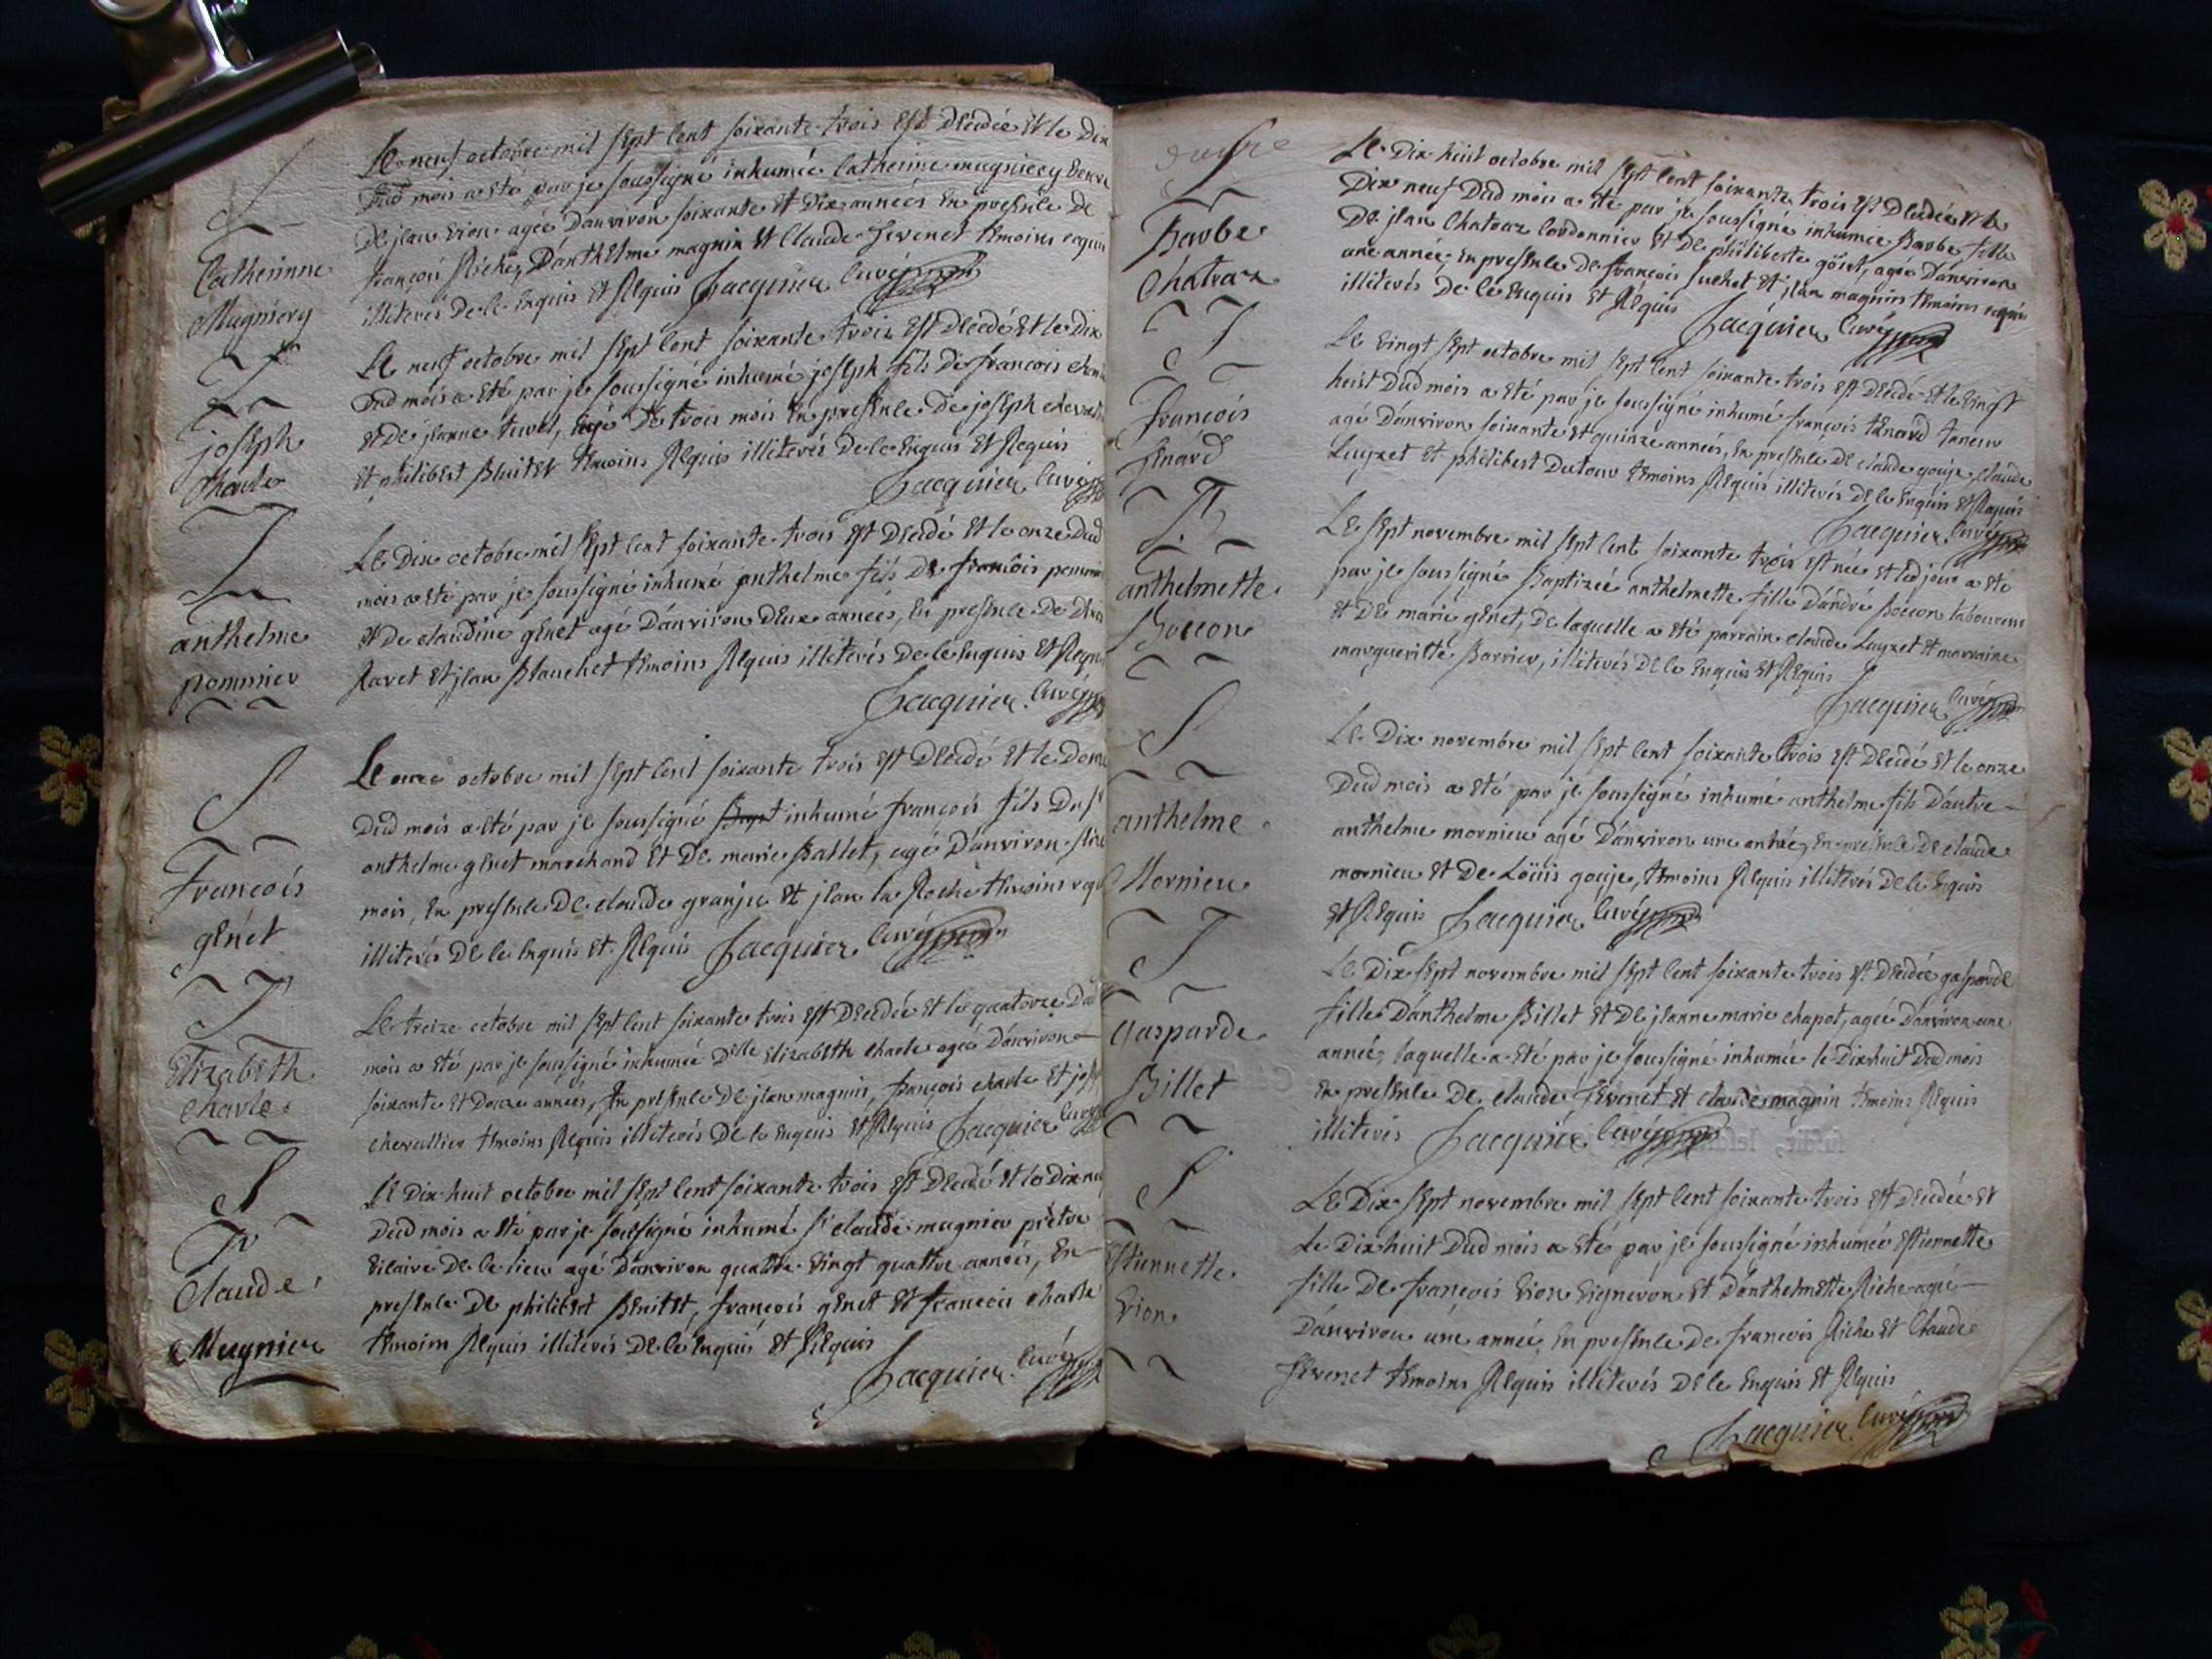 S
Catherinne
Mugniery
Le neuf octobre mil sept cent soixante trois est decedée et le dix
dud mois a eté par je soussigné inhumée Catherine mugniery veuve
de jean vion agée d'anviron soixante et dix années en presence de
francois Riche, d'anthelme magnin et claude fevenet temoins requis
illiterés de ce enquis et Requis Jacquier curé
S
joseph
Charle
Le neuf octobre mil sept cent soixante trois est decedé et le dix
dud mois a eté par je soussigné inhumé joseph fils de francois
et de jeanne agé de trois mois en presence de joseph
et philibert Benitet temoins Requis illiterés de ce enquis et Requis
Jacquier curé
S
anthelme
pommier
Le dix octobre mil sept cent soixante trois est decedé et le onze dud
mois a eté par je soussigné inhumé anthelme fils de francois
et de claudine genet agé d'anviron deux années, en presence de
Ravet et jean Blanchet temoins Requis illiterés de ce enquis et Requis
Jacquier curé
S
francois
genet
Le onze octobre mil sept cent soixante trois est decedé et le
dud mois a eté par je soussigné inhumé francois fils du sr
anthelme genet marchand et de marie Ballet, agé d'anviron
mois, en presence de claude granju et jean la Roche temoins
illiterés de ce enquis et Requis Jacquier curé
S
Elizabeth
charle
Le treize octobre mil sept cent soixante trois est decedée et le quatorze dud
mois a eté par je soussigné inhumée delle Elizabeth charle agée d'anviron
soixante et douze années, en presence de jean magnin, francois charle et
chevallier temoins Requis illiterés de ce enquis et Requis Jacquier curé
S
Claude
Mugnier
Le dix huit octobre mil sept cent soixante trois est decedé et le dix
dud mois a eté par je soussigné inhumé sr claude mugnier prêtre
vicaire de ce lieu agé d'anviron quattre vingt quattre années, en
presence de philibert Benitet, francois genet et francois charle
temoins Requis illiterés de ce enquis et Requis
Jacquier curé
S
Barbe
Chatraz
Le dix huit octobre mil sept cent soixante trois est decedée et le
dix neuf dud mois a eté par je soussigné inhumée Barbe fille
de jean Chatraz cordonnier et de philiberte goiet, agée d'anviron
une année, en presence de francois suchet et jean magnin temoins requis
illiterés de ce enquis et Requis
Jacquier curé
S
francois
tenard
Le vingt sept octobre mil sept cent soixante trois est decedé et le vingt
huit dud mois a eté par je soussigné inhumé francois tenard taneur
agé d'anviron soixante et quinze années, en presence de claude gouje claude
Luyzet et philibert Dutour temoins Requis illiterés de ce enquis et Requis
Jacquier curé
B
anthelmette
Boccon
Le sept novembre mil sept cent soixante trois est née et led jour a eté
par je soussigné Baptizée anthelmette fille d'andré Boccon laboureur
et de marie genet, de laquelle a eté parrain claude Luyzet et marraine
margueritte Barrier, illiterés de ce enquis et Requis
Jacquier curé
S
anthelme
Mornieu
Le dix novembre mil sept cent soixante trois est decedé et le onze
dud mois a eté par je soussigné inhumé anthelme fils d'autre
anthelme mornieu agé d'anviron une année, en presence de claude
mornieu et de Loüis gouje, temoins Requis illiterés de ce enquis
et Requis Jacquier curé
S
Gasparde
Billet
Le dix sept novembre mil sept cent soixante trois est decedée gasparde
fille d'anthelme Billet et de jeanne marie chapot, agée d'anviron une
année, laquelle a eté par je soussigné inhumée le dix huit dud mois
en presence de claude fevenet et claude magnin temoins Requis
illiterés Jacquier curé
S
Estiennette
Vion
Le dix sept novembre mil sept cent soixante trois est decedée et
Le dix huit dud mois a eté par je soussigné inhumée Estiennette
fille de francois vion vigneron et d'anthelmette Riche agée
d'anviron une année, en presence de francois Riche et Claude
fevenet temoins Requis illiterés de ce enquis et Requis
Jacquier curé